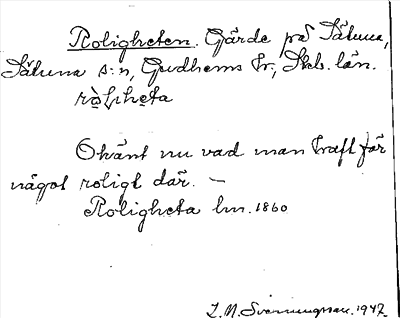 Roligheten. Gärde på Sätuna,
Sätuna s:n, Gudhems hr, Skb. län.
Okänt nu vad man haft för
något roligt där. —
Roligheta lm. 1860
Svenungsson. 1947